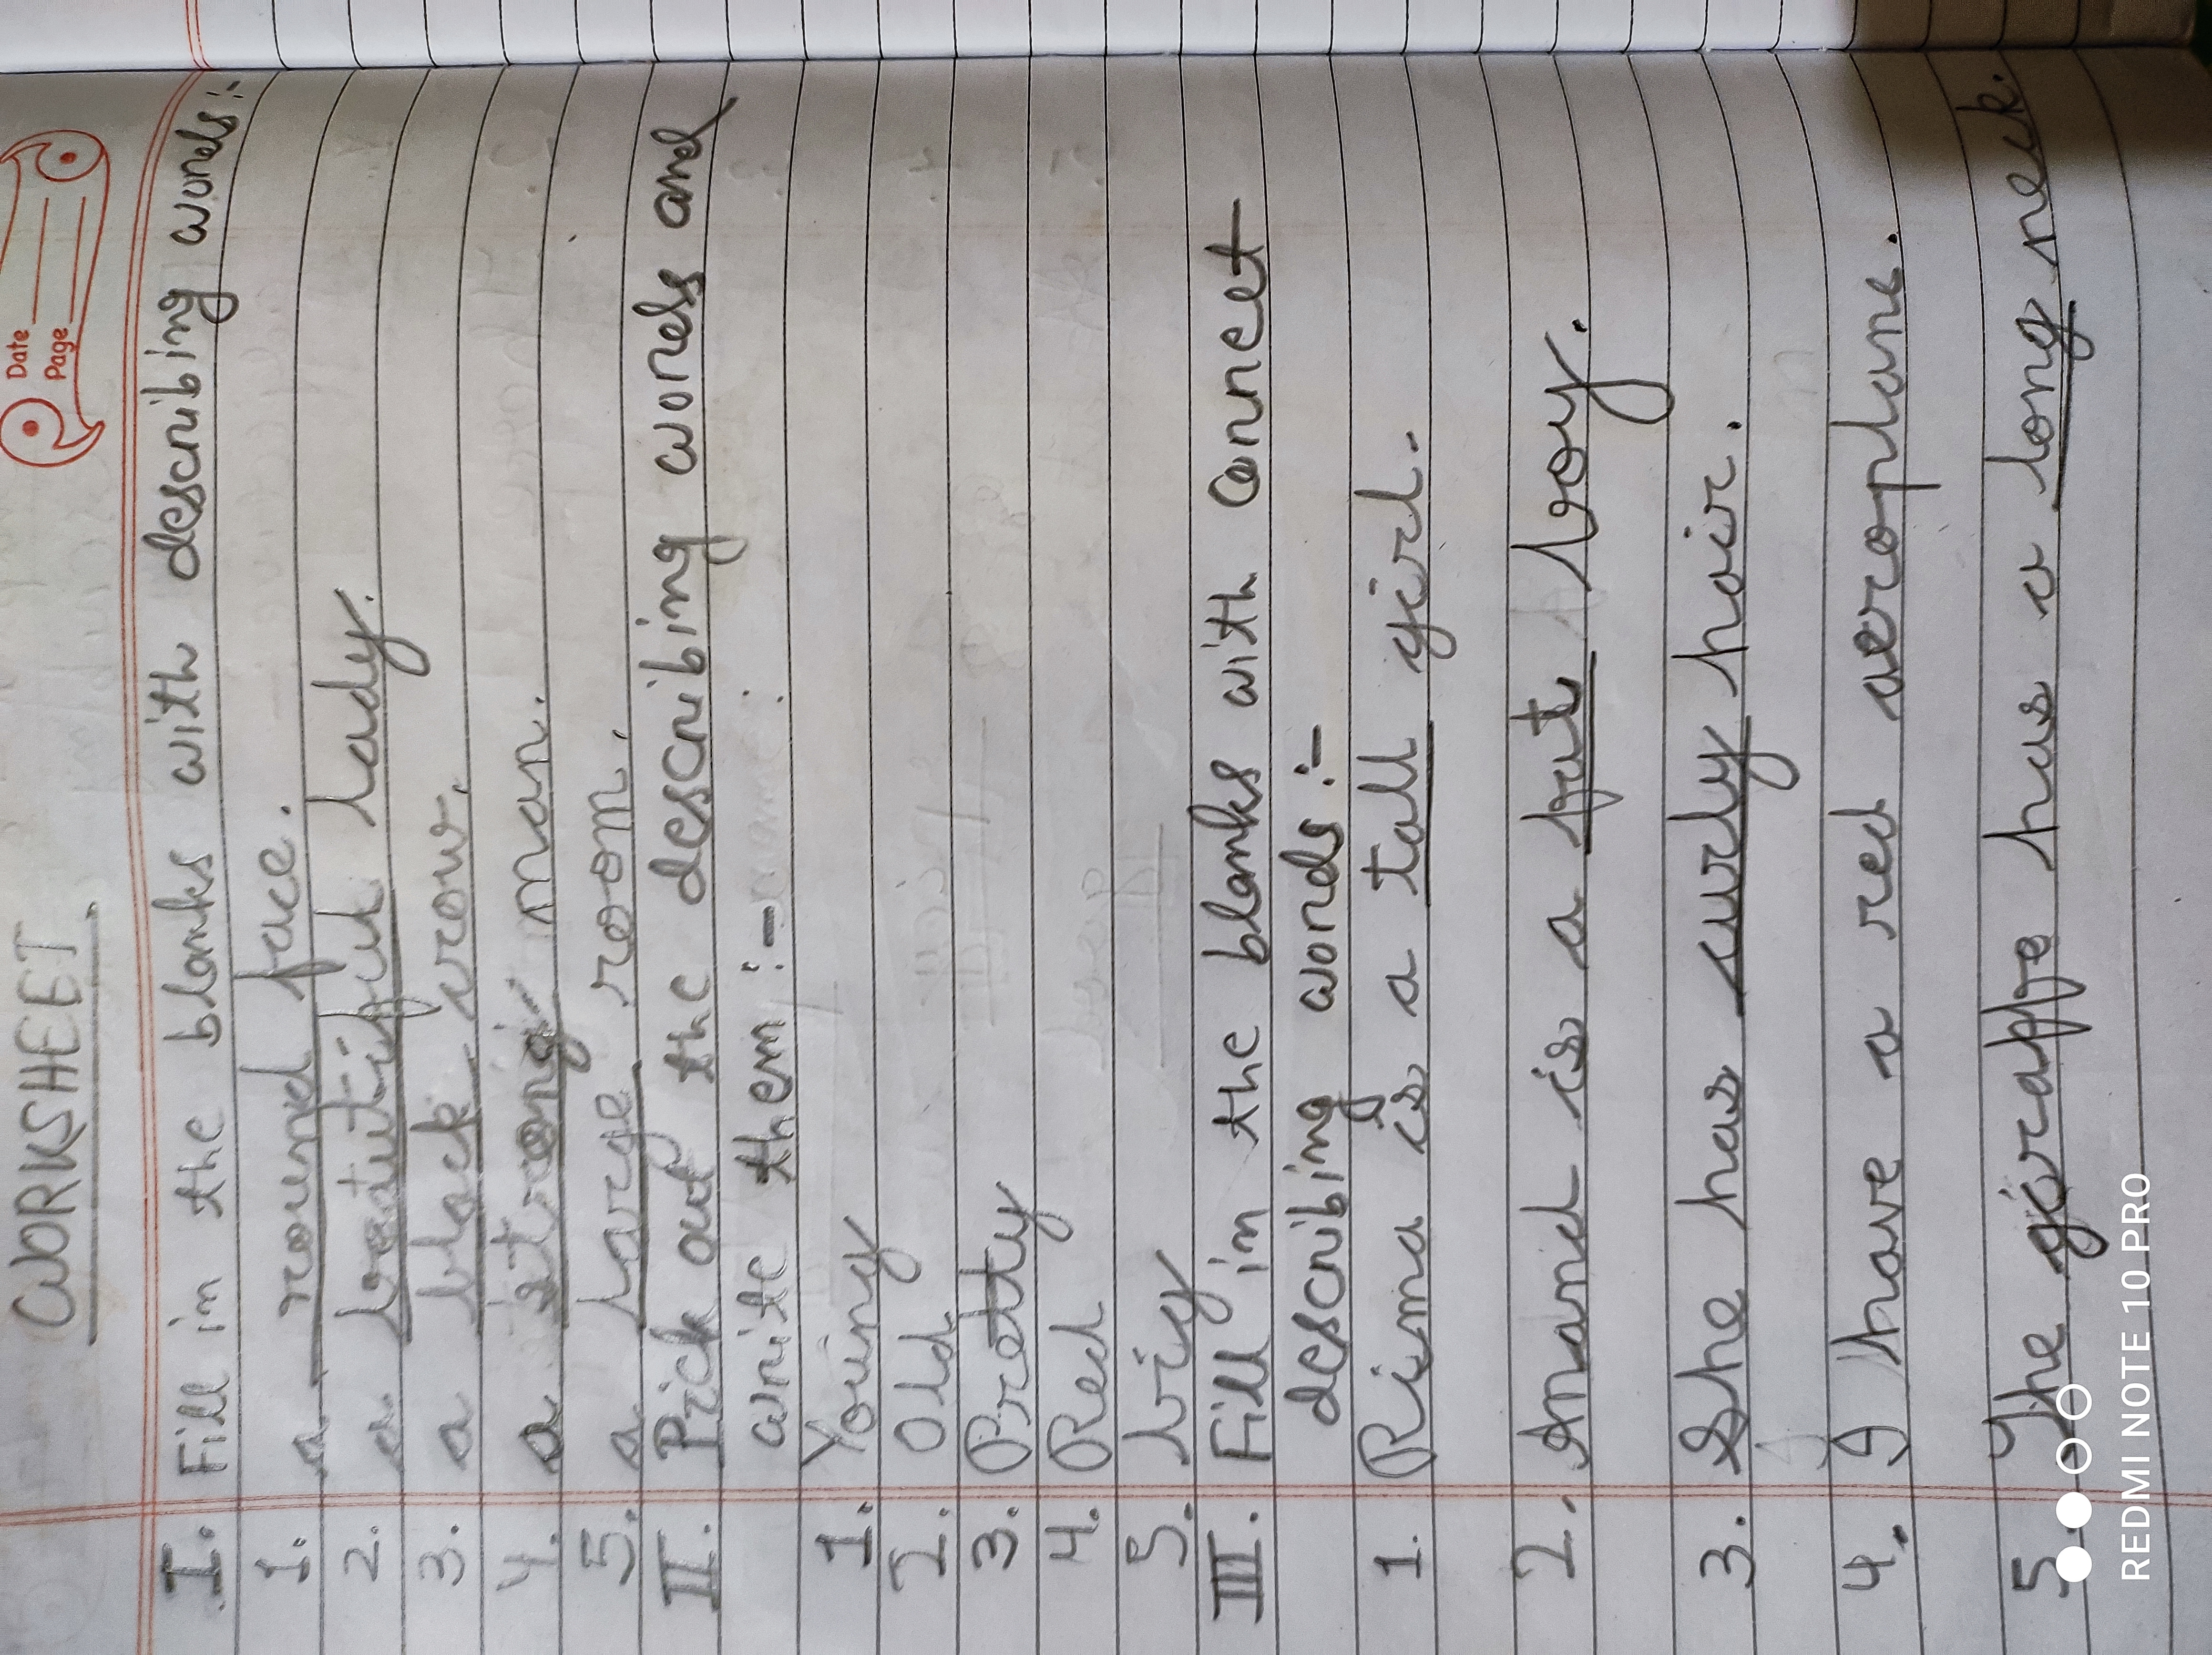 Date
Page
WORKSHEET
I. Fill in the blanks with describing words:-
1. a round face.
2. a beautiful lady.
3. a black crow.
4. a strong man.
5. a large room.
II. Pick out the describing words and
write them :-
1. Young
2. Old
3. Pretty
4. Red
5. big
III. Fill in the blanks with Correct
describing words :-
1. Rima is a tall girl.
2. Anand is a fat boy.
3. She has curly hair.
4. I have a red aeroplane.
5. The giraffe has a long neck.
REDMI NOTE 10 PRO